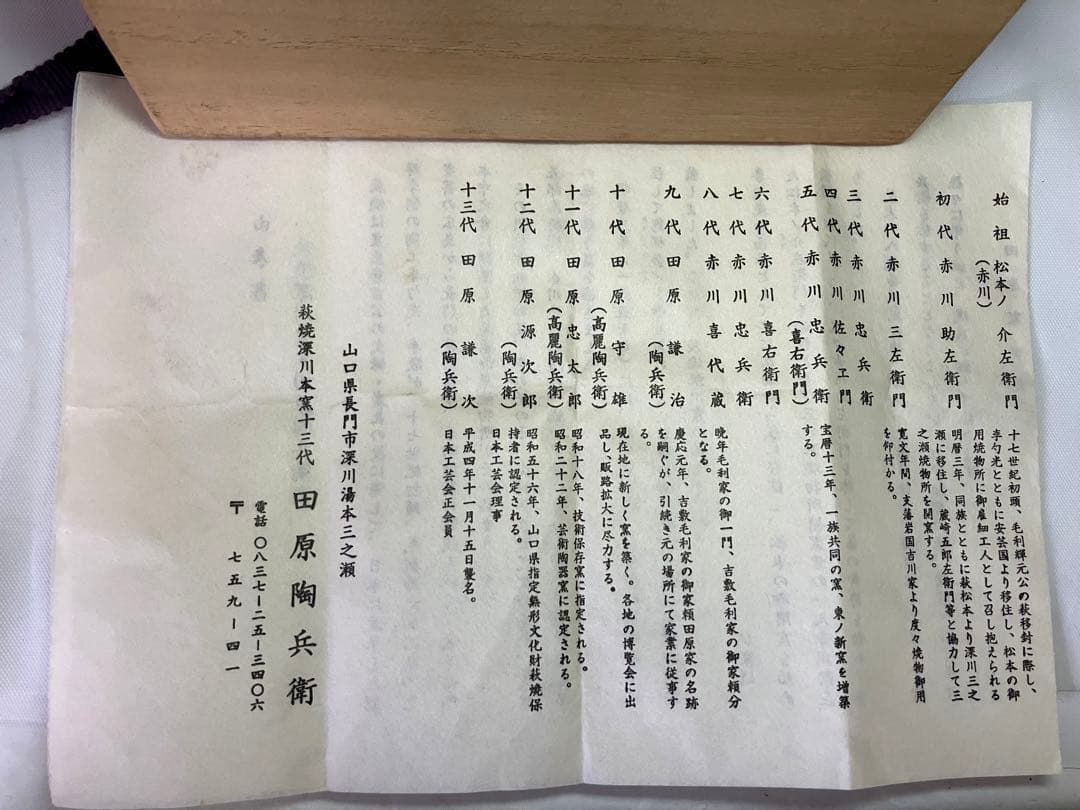 始祖 松本ノ介左衛門
(赤川)
十七世紀初頭、毛利輝元公の萩移封に際し、
李勺光とともに安芸国より移住し、松本の御
用焼物所に御雇細工人として召し抱えられる
初代 赤川助左衛門
明暦三年、同族とともに萩松本より深川三之
瀬に移住し、蔵崎五郎左衛門等と協力して三
之瀬焼物所を開窯する。
二代 赤川三左衛門
寛文年間、支藩岩国吉川家より度々焼物御用
を仰付かる。
三代 赤川忠兵衛
四代 赤川佐々ヱ門
五代 赤川忠兵衛
(喜右衛門)
宝暦十三年、一族共同の窯、東ノ新窯を増築
する。
六代 赤川喜右衛門
七代 赤川忠兵衛
八代 赤川喜代蔵
晩年毛利家の御一門、吉敷毛利家の御家頼分
となる。
九代 田原謙治
(陶兵衛)
慶応元年、吉敷毛利家の御家頼田原家の名跡
を嗣ぐが、引続き元の場所にて家業に従事す
る。
十代 田原守雄
(高麗陶兵衛)
現在地に新しく窯を築く。各地の博覧会に出
品し、販路拡大に尽力する。
十一代 田原忠太郎
(高麗陶兵衛)
昭和十八年、技術保存窯に指定される。
昭和二十二年、芸術陶器窯に認定される。
十二代 田原源次郎
(陶兵衛)
昭和五十六年、山口県指定無形文化財萩焼保
持者に認定される。
日本工芸会理事
十三代 田原謙次
(陶兵衛)
平成四年十一月十五日襲名。
日本工芸会正会員
山口県長門市深川湯本三之瀬
萩焼深川本窯十三代 田原陶兵衛
電話 〇八三七―二五―三四〇六
〒 七五九―四一